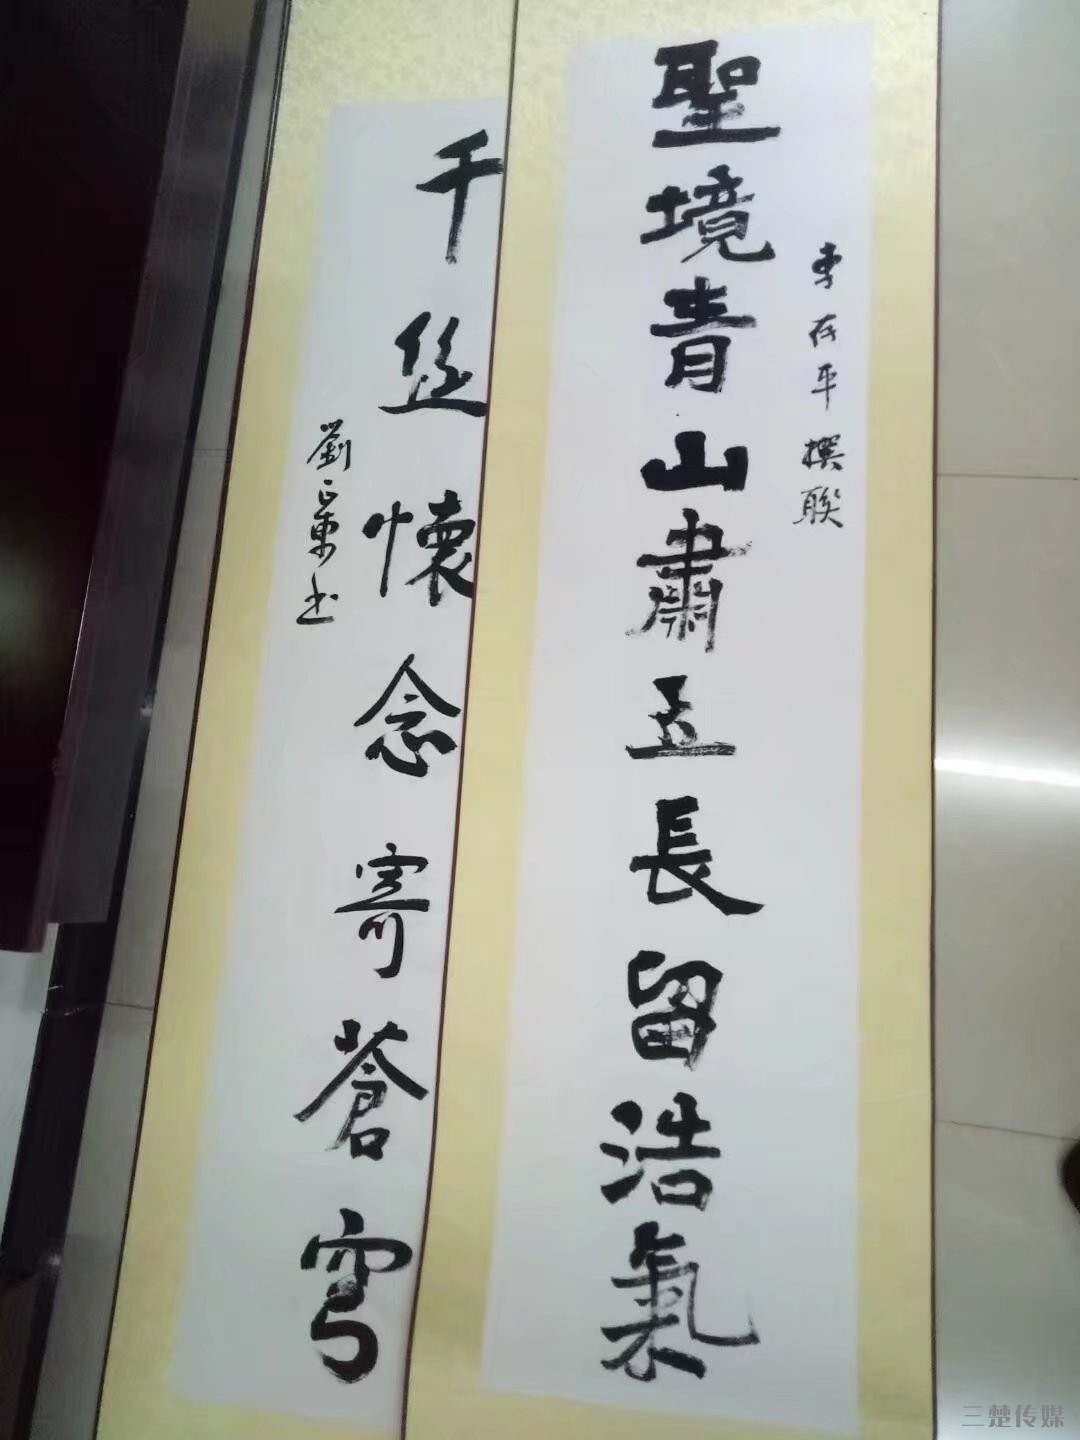 平撰聯
聖境青山肅立長留浩氣
千丝懷念寄蒼穹
劉书
三楚传媒